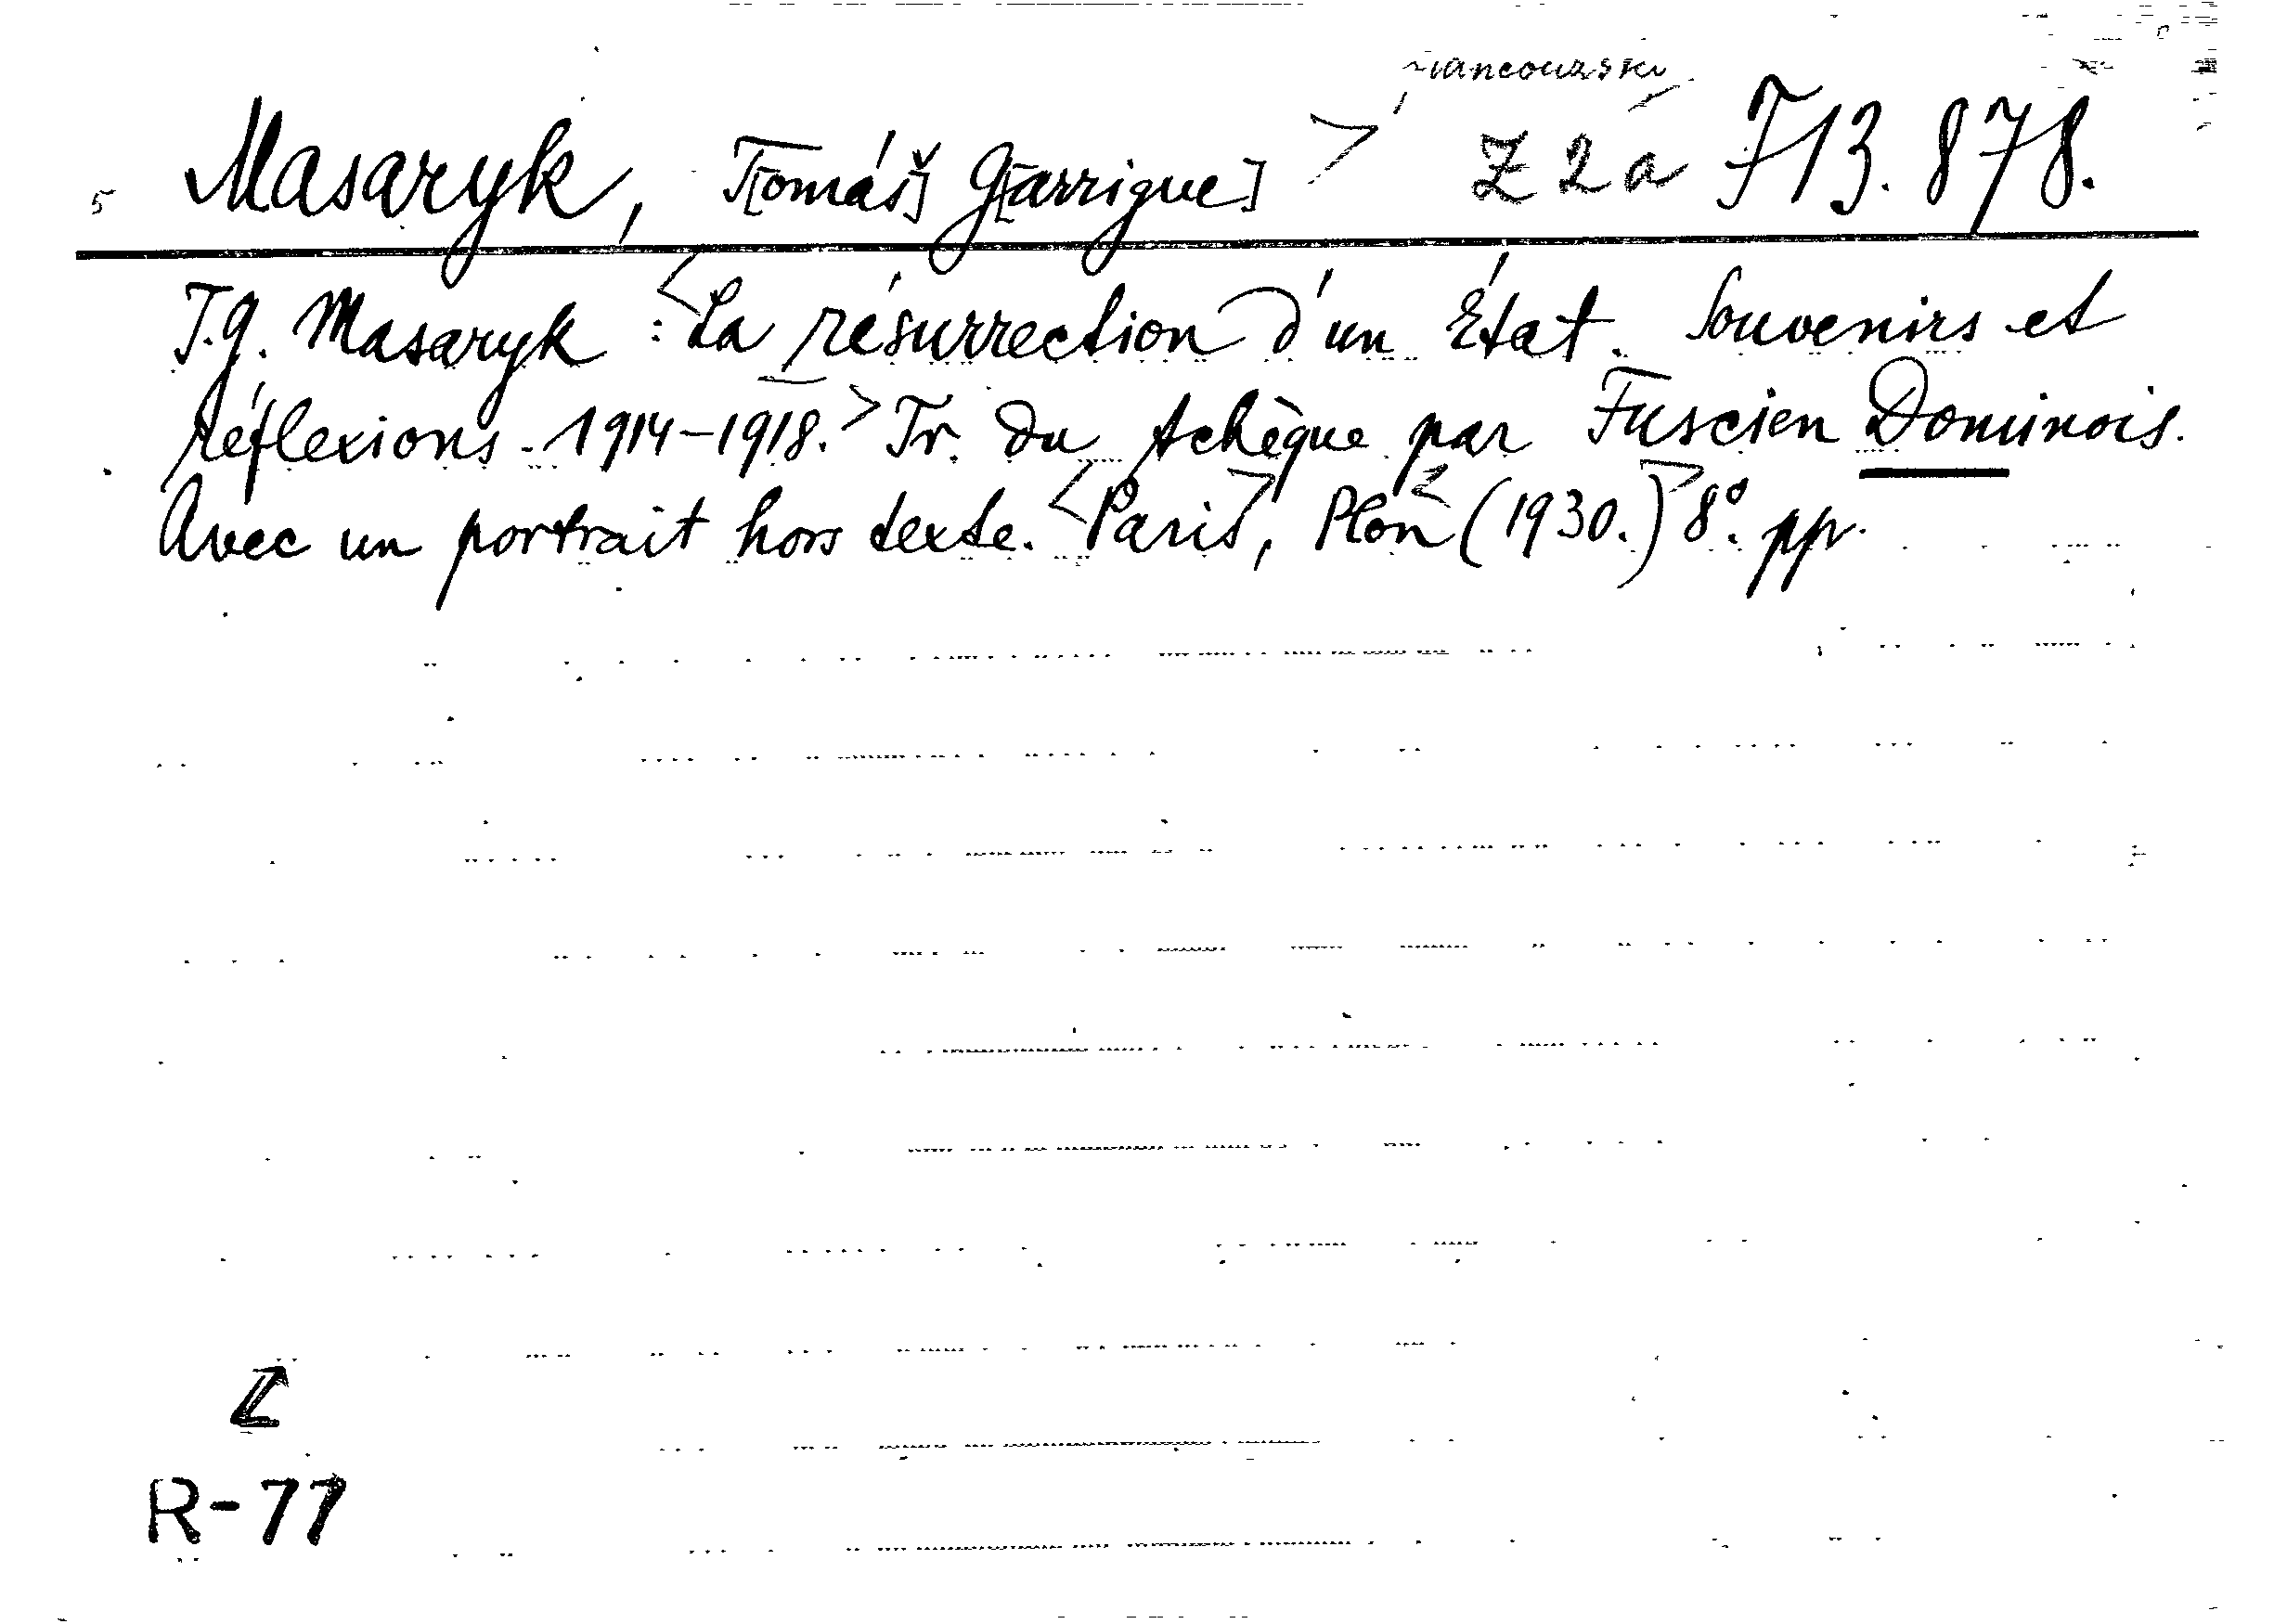 francouzsky
5 Masaryk, T[omáš] G[arrigue] > Z 2 a F 13.878.
T.G. Masaryk : <La résurrection d'un État. Souvenirs et
réflexions. 1914-1918.> Tr. du tchèque par Fuscien Dominois.
Avec un portrait hors texte. <Paris>, Plon (1930.)> 8°. pp.
Z
R-77